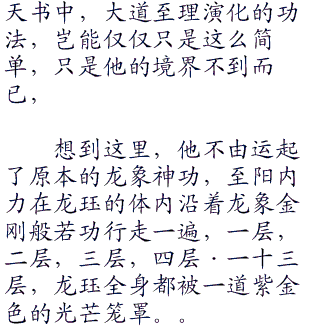 天书中，大道至理演化的功
法，岂能仅仅只是这么简
单，只是他的境界不到而
已，
想到这里，他不由运起
了原本的龙象神功，至阳内
力在龙珏的体内沿着龙象金
刚般若功行走一遍，一层，
二层，三层，四层·一十三
层，龙珏全身都被一道紫金
色的光芒笼罩。。